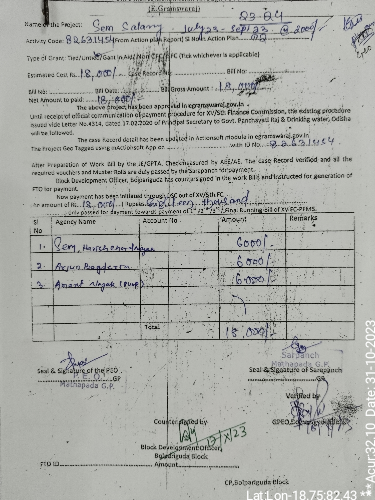 (E Gramswaraj)
23-24
Name of the Project: Sem Salary July 23 - Sep 23 @ 2000/-
Activity Code: 82631454 (From Action plan Report) Sl No in Action Plan
Type of Grant: Tied/Untied/Gant in Aid/Non (Tick whichever is applicable)
Estimated Cost Rs. 18,000/- Case Record No Bill No:
Bill No: Bill Date: Bill Gross Amount: 18,000/-
Net Amount to paid: 18,000/-
The above project has been approved in egramswaraj.gov.in
Until receipt of official communication of payment procedure for XV Finance Commission, the existing procedure
issued vide Letter No.4314, dates 17.02.2020 of Principal Secretary to Govt. Panchayati Raj & Drinking water, Odisha
will be followed.
The case Record detail has been updated in Actionsoft module in egramswaraj.gov.in
The Project Geo Tagged using mActionsoft App on with ID No. 82631454
After Preparation of Work Bill by the JE/GPTA, Check measured by ASE/AE. The case Record verified and all the
required vouchers and Muster Rolls are duly passed by the Sarapanch for payment.
Block Development Officer, Bolpariguda has countersigned in the work Bill and instructed for generation of
FTO for payment.
Now payment has been initiated through DSC out of XV/5th FC
an amount of Rs. 18,000/- (Rupees Eighteen thousand
only passed for payment towards payment of 1st/2nd/3rd/Final Running Bill of XV FC-PFMS.
Sl No Agency Name Account No Amount Remarks
1. Sem, Harichandra Nayak 6000/-
2. Arjun 6000/-
3. Anant Nayak 6000/-
Total 18,000/-
Seal & Signature of the PEO
P.E.O
Mathapada G.P.
Sarpanch
Mathapada G.P.
Seal & Signature of Sarapanch
GP
Verified by
GPEO
Counter signed by
12/X/23
Block Development Officer,
Boipariguda Block
FTO ID Amount
CP, Boipariguda Block
Lat:Lon-18.75:82.43 **Acur:32.10 Date: 31-10-2023